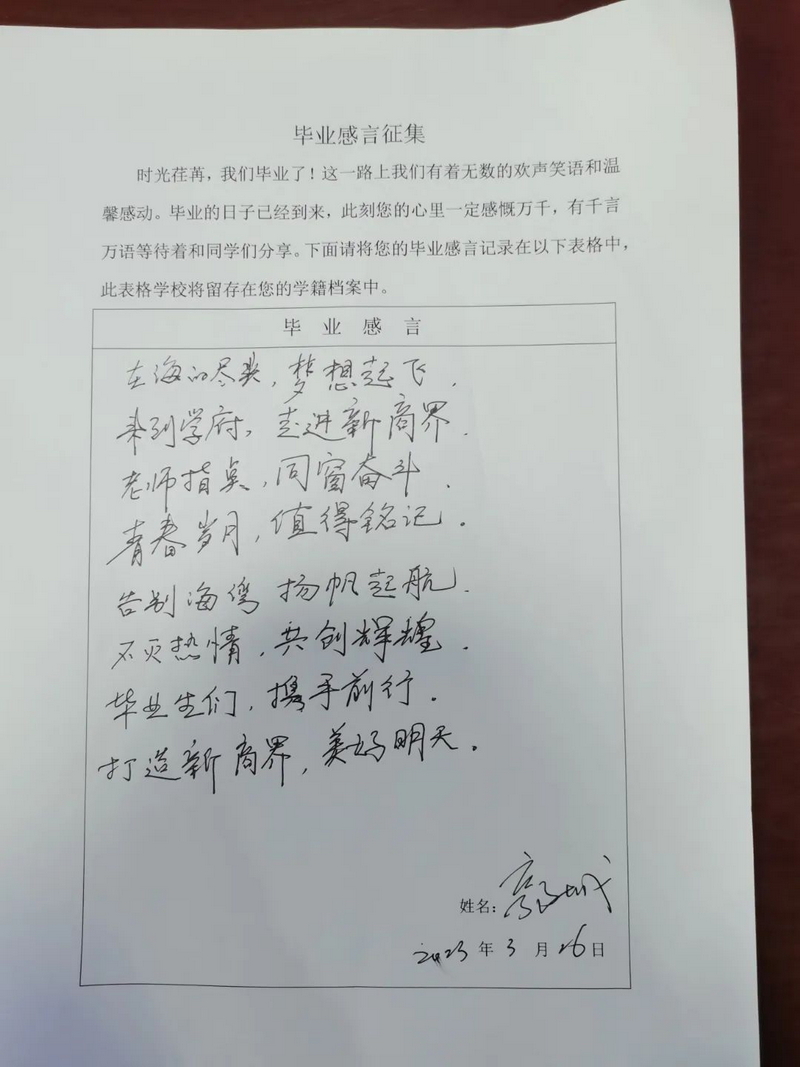 毕业感言征集
时光荏苒，我们毕业了！这一路上我们有着无数的欢声笑语和温
馨感动。毕业的日子已经到来，此刻您的心里一定感慨万千，有千言
万语等待着和同学们分享。下面请将您的毕业感言记录在以下表格中，
此表格学校将留存在您的学籍档案中。
毕 业 感 言
在海的尽头，梦想起飞.
来到学府，走进新商界.
老师指点，同窗奋斗.
青春岁月，值得铭记。
告别海湾 扬帆起航.
不灭热情，共创辉煌.
毕业生们，携手前行.
打造新商界，美好明天。
姓名：
2023 年 3 月 26 日